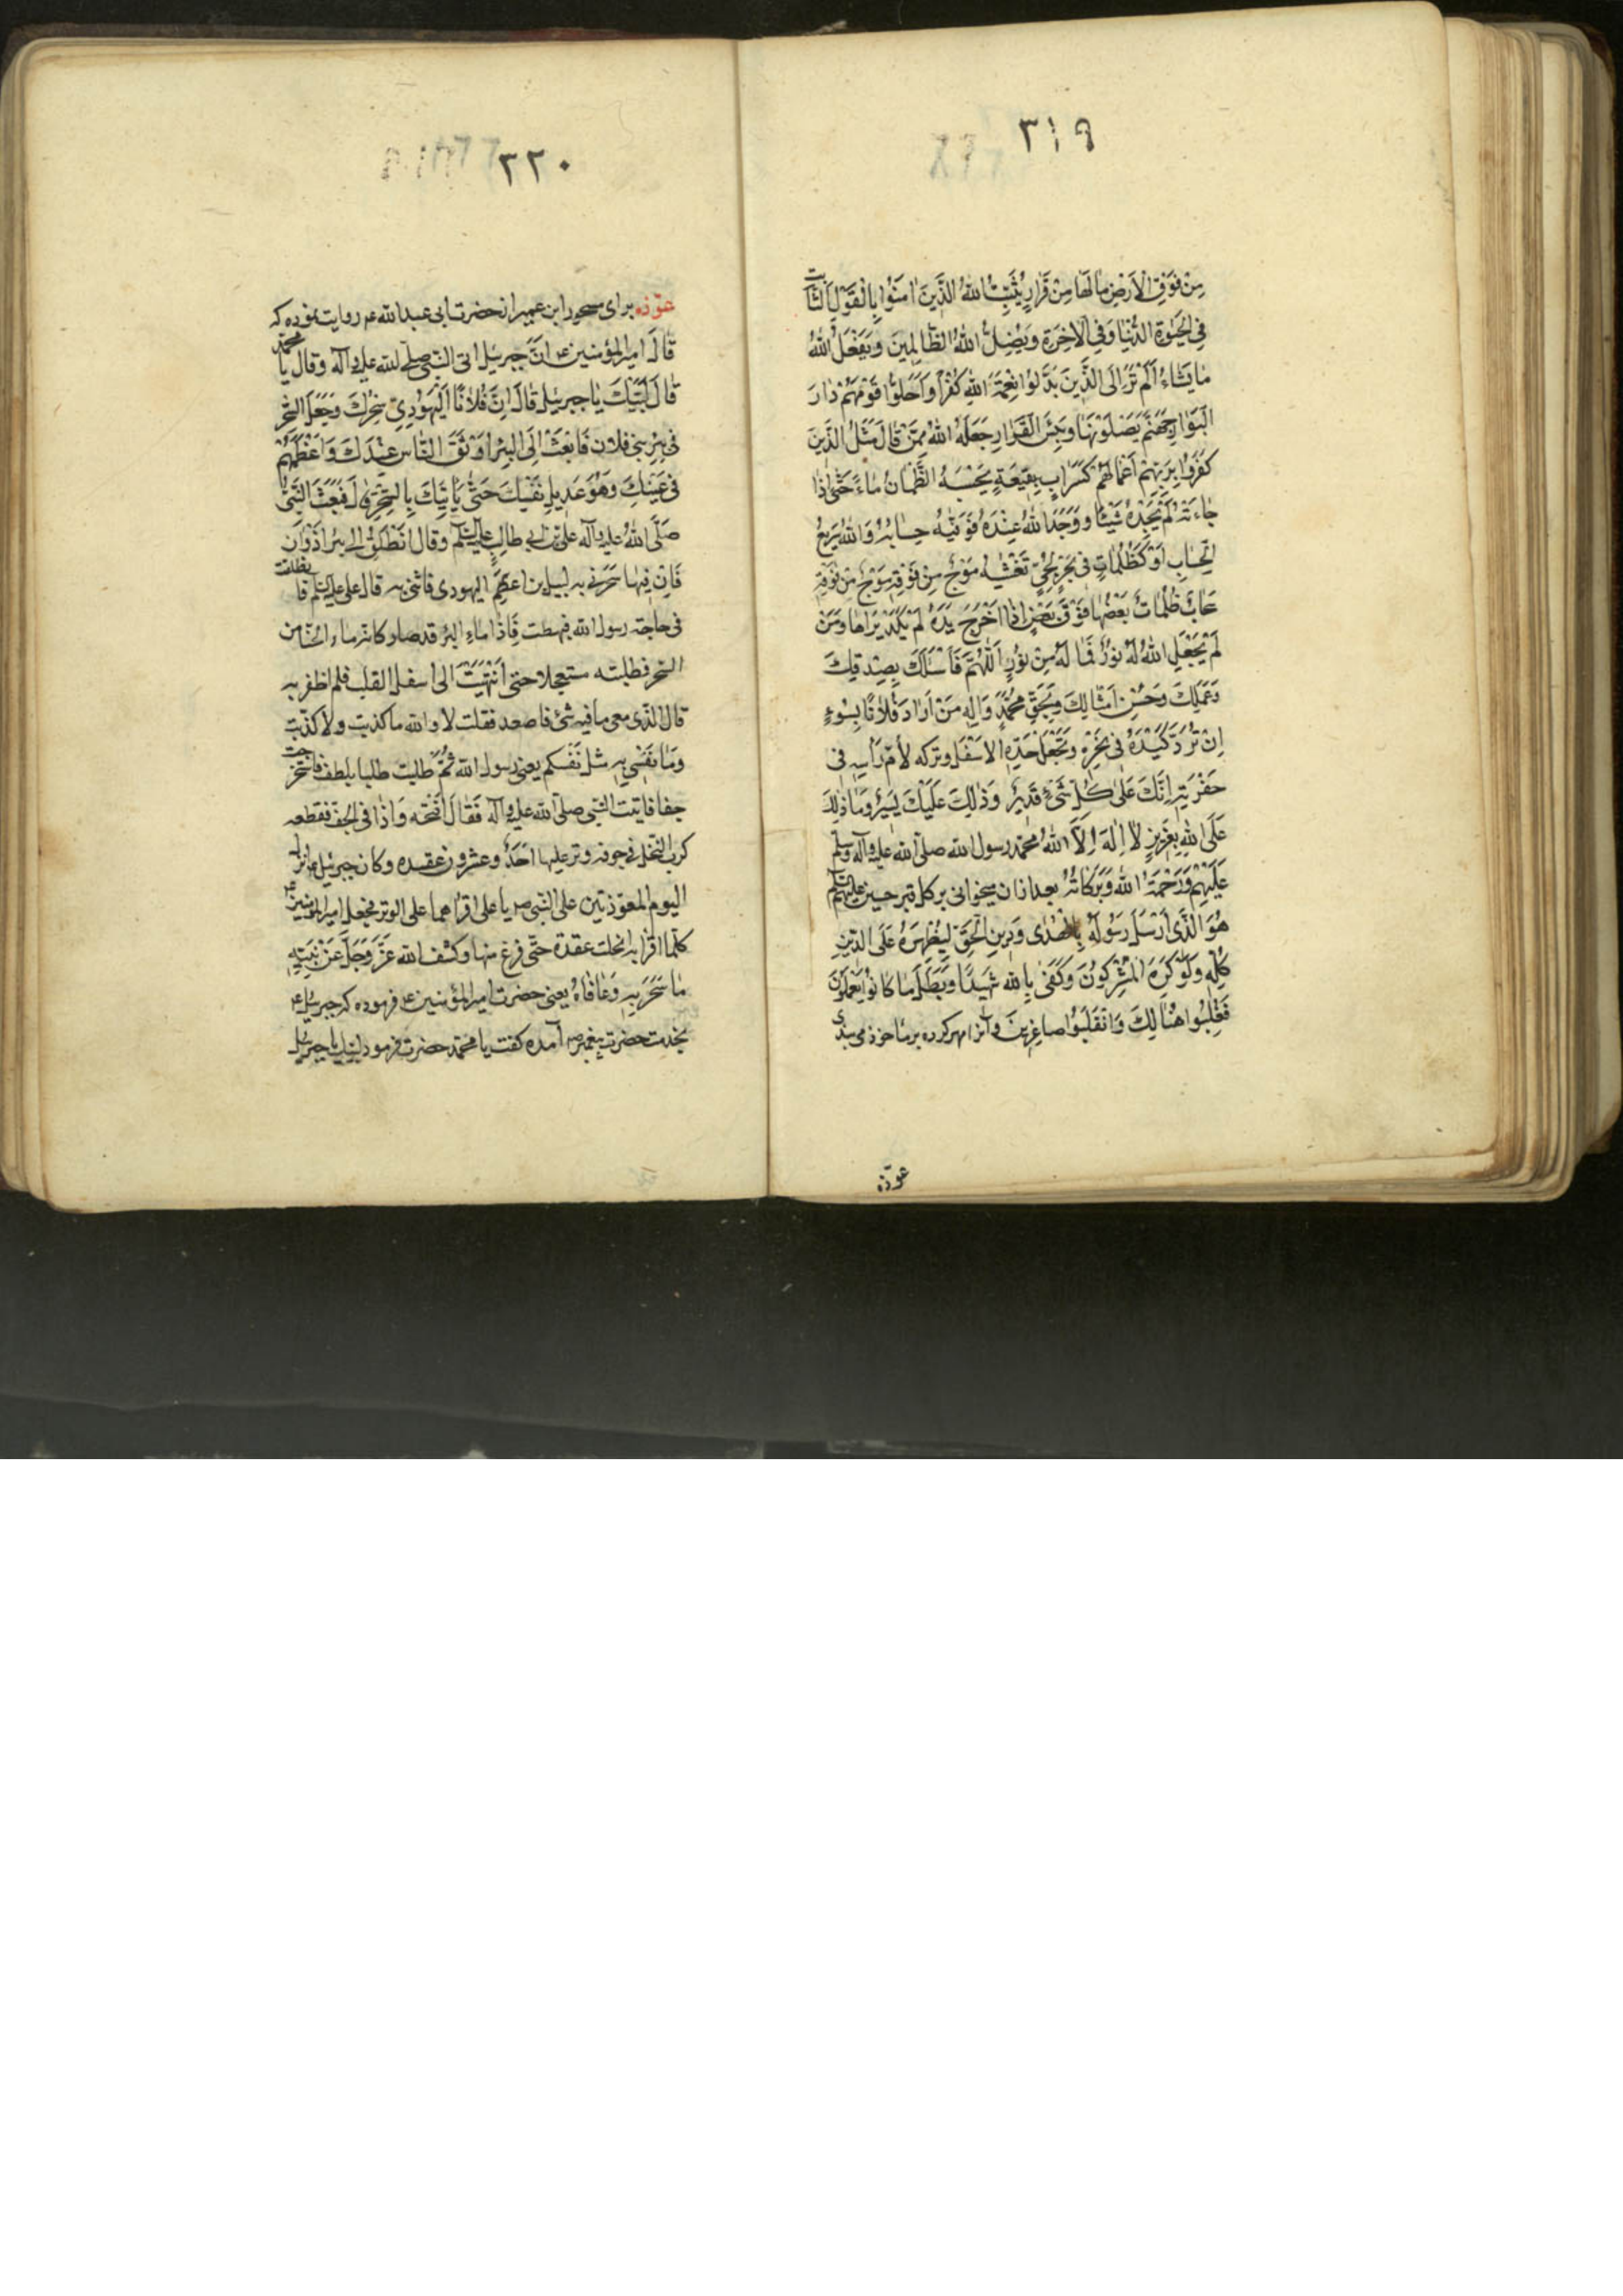 ٣١٩
مِنْ فَوْقِ الْاَرْضِ مٰا لَهٰا مِنْ قَرٰارٍ يُثَبِّتُ اللهُ الَّذِينَ اٰمَنُوا بِالْقَوْلِ الثّٰابِتِ
فِي الْحَيٰوةِ الدُّنْيٰا وَفِي الْاٰخِرَةِ وَيُضِلُّ اللهُ الظّٰالِمِينَ وَيَفْعَلُ اللهُ
مٰا يَشٰاءُ اَلَمْ تَرَ اِلَى الَّذِينَ بَدَّلُوا نِعْمَةَ اللهِ كُفْراً وَاَحَلُّوا قَوْمَهُمْ دٰارَ
الْبَوٰارِ جَهَنَّمَ يَصْلَوْنَهٰا وَبِئْسَ الْقَرٰارُ جَعَلَهُ اللهُ مِمَّنْ قٰالَ مَثَلُ الَّذِينَ
كَفَرُوا بِرَبِّهِمْ اَعْمٰالُهُمْ كَسَرٰابٍ بِقِيعَةٍ يَحْسَبُهُ الظَّمْاٰنُ مٰاءً حَتّٰى اِذٰا
جٰاءَتْهُ لَمْ يَجِدْهُ شَيْئًا وَوَجَدَ اللهَ عِنْدَهُ فَوَفّٰيهُ حِسٰابَهُ وَاللهُ سَرِيعُ
الْحِسٰابِ اَوْ كَظُلُمٰاتٍ فِي بَحْرٍ لُجِّيٍّ تَغْشٰيهُ مَوْجٌ مِنْ فَوْقِهِ مَوْجٌ مِنْ فَوْقِهِ
سَحٰابٌ ظُلُمٰاتٌ بَعْضُهٰا فَوْقَ بَعْضٍ اِذٰا اَخْرَجَ يَدَهُ لَمْ يَكَدْ يَرٰاهٰا وَمَنْ
لَمْ يَجْعَلِ اللهُ لَهُ نُورًا فَمٰا لَهُ مِنْ نُورٍ اَللّٰهُمَّ فَاَسْئَلُكَ بِصِدْقِكَ
وَحُسْنِ اَمْثٰالِكَ وَبِحَقِّ مُحَمَّدٍ وَاٰلِهِ مَنْ اَرٰادَ فُلاٰنًا بِسُوءٍ
اِنْ تَرُدَّ كَيْدَهُ فِي نَحْرِهِ وَتَجْعَلَ خَدَّهُ الاسْفَلَ وتركه لأُمّ رَأسِهِ فى
حَفْرَتِهِ اِنَّكَ عَلٰى كُلِّ شَىْءٍ قَدِيرٌ وَذٰلِكَ عَلَيْكَ يَسِيرٌ وَمٰا ذٰلِكَ
عَلَى اللهِ بِعَزِيزٍ لاٰ اِلٰهَ اِلاَّ اللهُ محمّد رسول الله صلى الله عليه وآله وسلّم
عَلَيْهِمْ وَرَحْمَةُ اللهِ وَبَرَكٰاتُهُ بعد از ان ميخوانى بر كل قبر حسين عليه السّلم
هُوَ الَّذِى اَرْسَلَ رَسُولَهُ بِالْهُدٰى وَدِينِ الْحَقِّ لِيُظْهِرَهُ عَلَى الدِّينِ
كُلِّهِ وَلَوْ كَرِهَ الْمُشْرِكُونَ وَكَفٰى بِاللهِ شَهِيدًا وَبَطَلَ مٰا كٰانُوا يَعْمَلُونَ
فَغُلِبُوا هُنٰالِكَ وَانْقَلَبُوا صٰاغِرِينَ وآنرا مهر كرده بر ما خوذ مى بندى
عوذه
٣٢٠
عوّذه براى مسحور ابن عمير از حضرت ابى عبد الله ع روايت نموده كه
قٰالَ امير المؤمنين ع انَّ جبرئيل اتى النّبى صلى الله عليه وآله وقال يا محمّد
قٰالَ لَبَّيْكَ يٰا جبرئيل قٰالَ اِنَّ فُلاٰنًا الْيَهُودِيَّ سَحَرَكَ وَجَعَلَ السِّحْرَ
فى بِئْرِ بَنِي فلان فَابْعَثْ اِلَى البِئْرِ اَوْثَقَ النّٰاسِ عِنْدَكَ وَاَعْظَمَهُمْ
فى عَيْنِكَ وَهُوَ عَدِيلُ نَفْسِكَ حَتّٰى يَأتِيَكَ بِالسِّحْرِ قٰالَ فَبَعَثَ النَّبِيُّ
صَلَّى اللهُ عليه وآله علىّ بن ابى طالِبٍ عليه السّلم وَقٰالَ انْطَلِقْ الى بئر اَذْوٰان
فَاِنَّ فِيهٰا سِحْرٌ سَحَرَنِي به لبيد بن اعصم اليهودى فاتنى به قال على عليه السّلم فانطلقت
فى حاجة رسول الله فهبطت فَاِذٰا ماء البئر قد صار كانه ماء الحنّا من
السّحر فطلبته مستعجلا حتى اِنْتَهَيْتُ الى اسفل القليب فلم اظفر به
قال الّذى معى ما فيه شئ فاصعد فقلت لا والله ما كذبت ولا كذّبت
وَمٰا نَفْسِي بِهِ مثل نَفْسكم يعنى رسول الله ثُمَّ طلبت طلبا بلطف فاستخرجت
حقا فاتيت النّبى صلى الله عليه وآله فَقٰالَ افْتَحْه وَاِذٰا فى الحق قطعه
كرب النّخل فى جوفه وتر عليها اَحَدٌ وعشرون عقده وكان جبرئيل ع انزل
اليوم المعوّذتين على النّبى ص يا على اقراهما على الوتر فجعل امير المؤمنين ع
كلّما اقرا به انحلت عقدة حتّى فرغ منها وكشف الله عَزَّ وَجَلَّ عَنْ نَبِيِّهِ
مٰا سَحَرَ بِهِ وَعٰافٰاهُ يعنى حضرت امير المؤمنين ع فرموده كه جبرئيل ع
بخدمت حضرت پيغمبر ص آمده كفت يا محمّد حضرت فرمود لبّيك يا جبرئيل